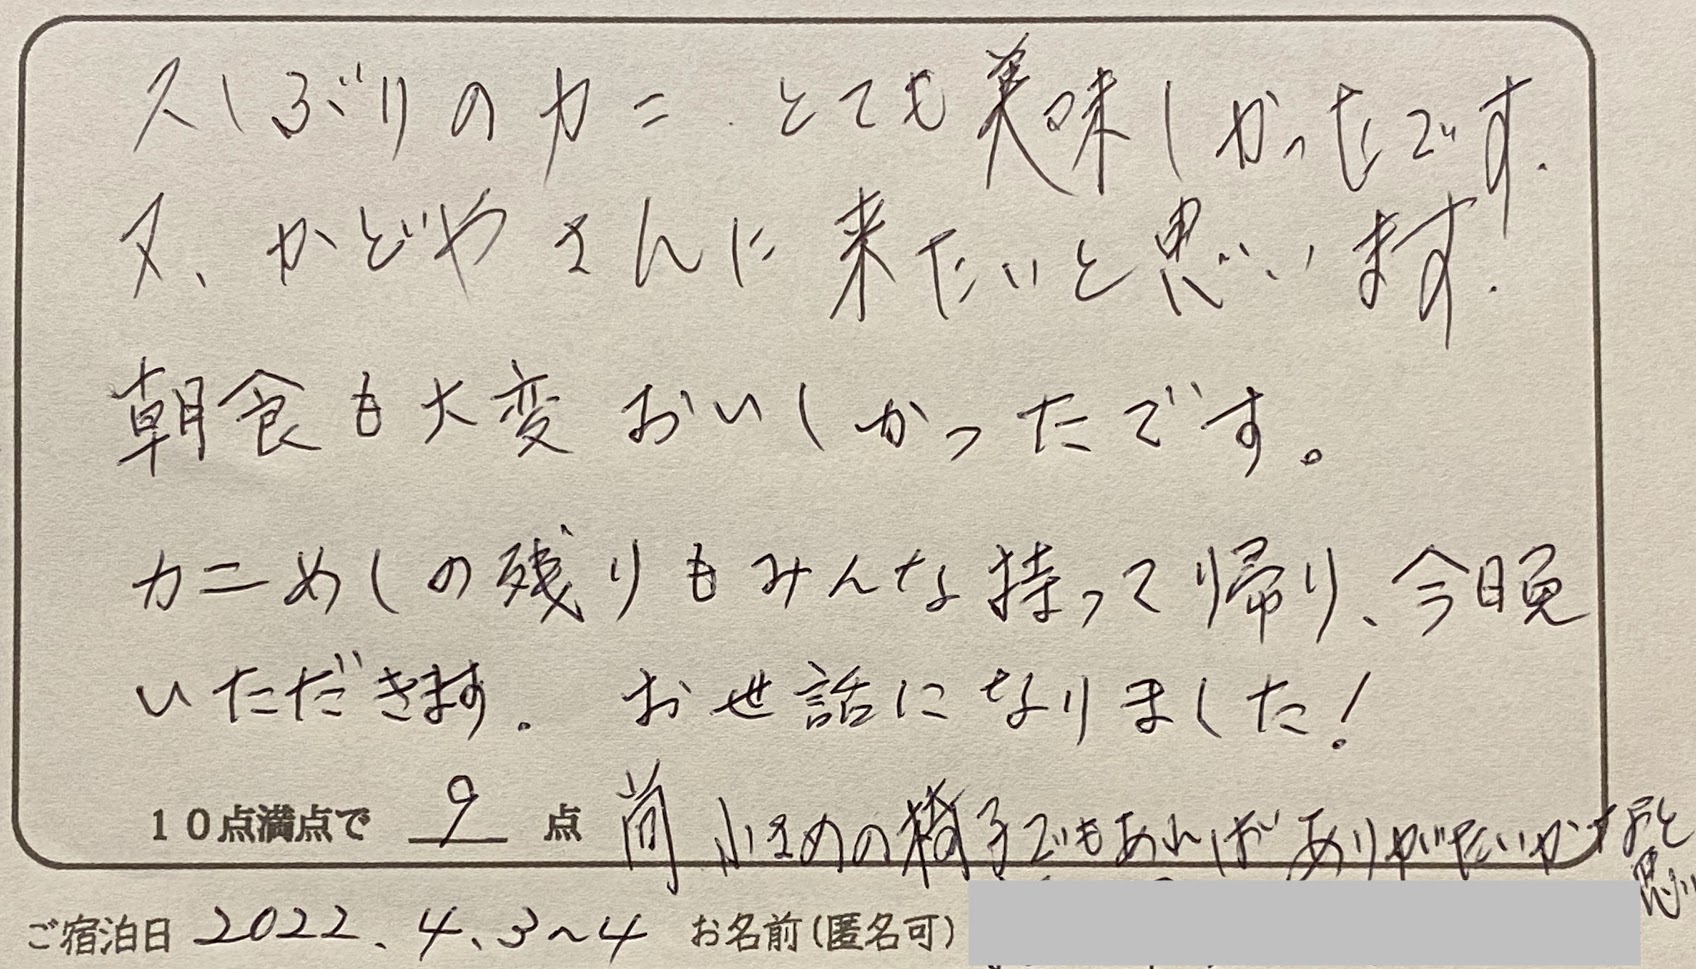 久しぶりのカニ、とても美味しかったです.
又、かどやさんに来たいと思います.
朝食も大変おいしかったです。
カニめしの残りもみんな持って帰り、今晩
いただきます. お世話になりました!
10点満点で 9 点 尚 小さめの椅子でもあればありがたいかなと
思い
ご宿泊日 2022.4.3~4 お名前(匿名可)